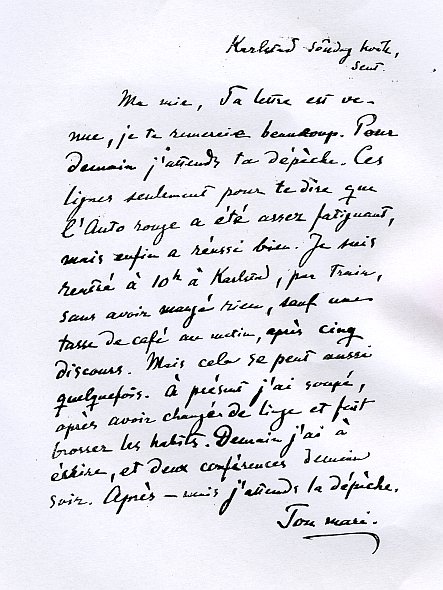 Karlstad söndag kväll,
sent.
Ma mie, Ta lettre est ve-
nue, je te remercie beaucoup. Pour
demain j'attends ta dépêche. Ces
lignes seulement pour te dire que
l'Auto rouge a été assez fatiguant,
mais enfin a réussi bien. Je suis
rentré à 10h à Karlstad, par train,
sans avoir mangé rien, sauf une
tasse de café au matin, après cinq
discours. Mais cela se peut aussi
quelquefois. À présent j'ai soupé,
après avoir changé de linge et fait
brosser les habits. Demain j'ai à
écrire, et deux conférences demain
soir. Après — mais j'attends ta dépêche.
Ton mari.